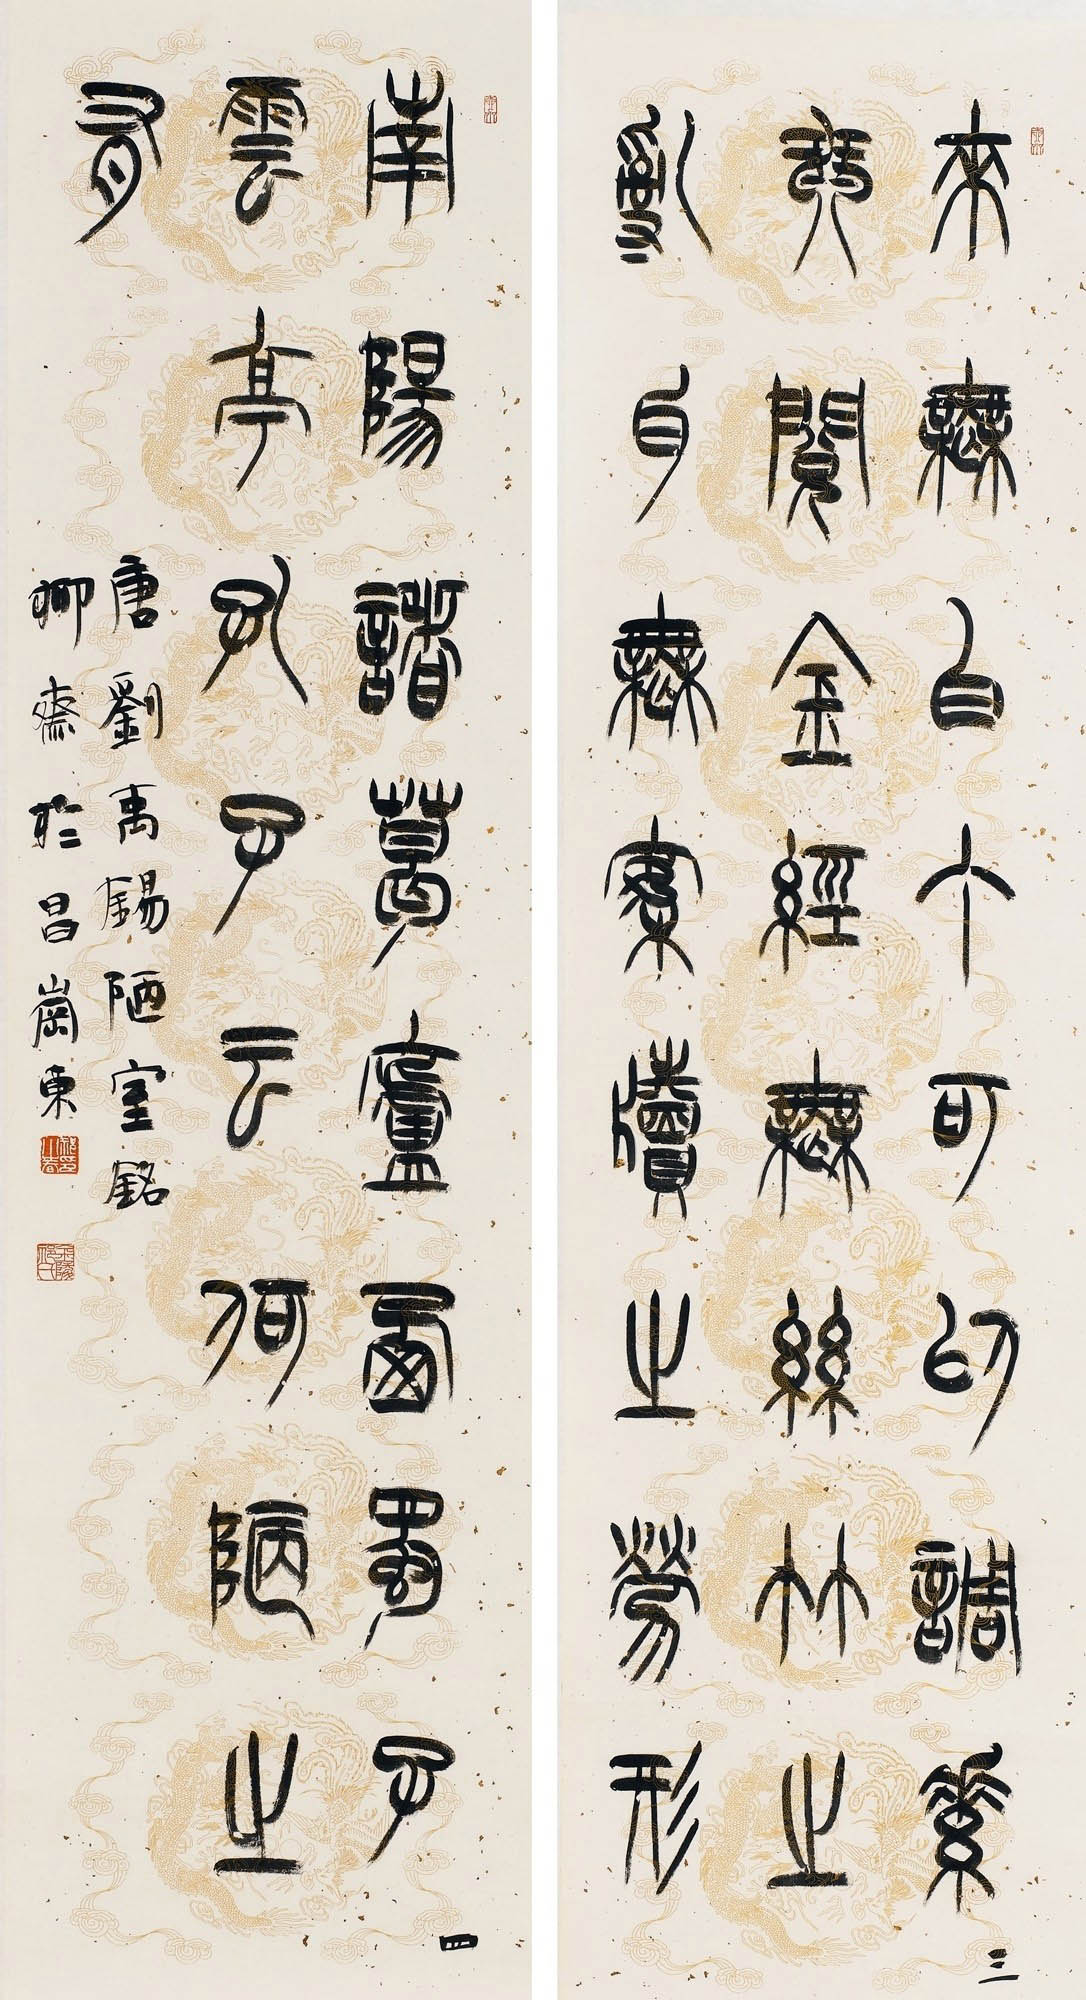 來無白丁可以調素
琴閱金經無絲竹之
亂耳無案牘之勞形
三
南陽諸葛廬西蜀子
雲亭孔子云何陋之
有
唐劉禹錫陋室銘
卿齋於昌崗東
四